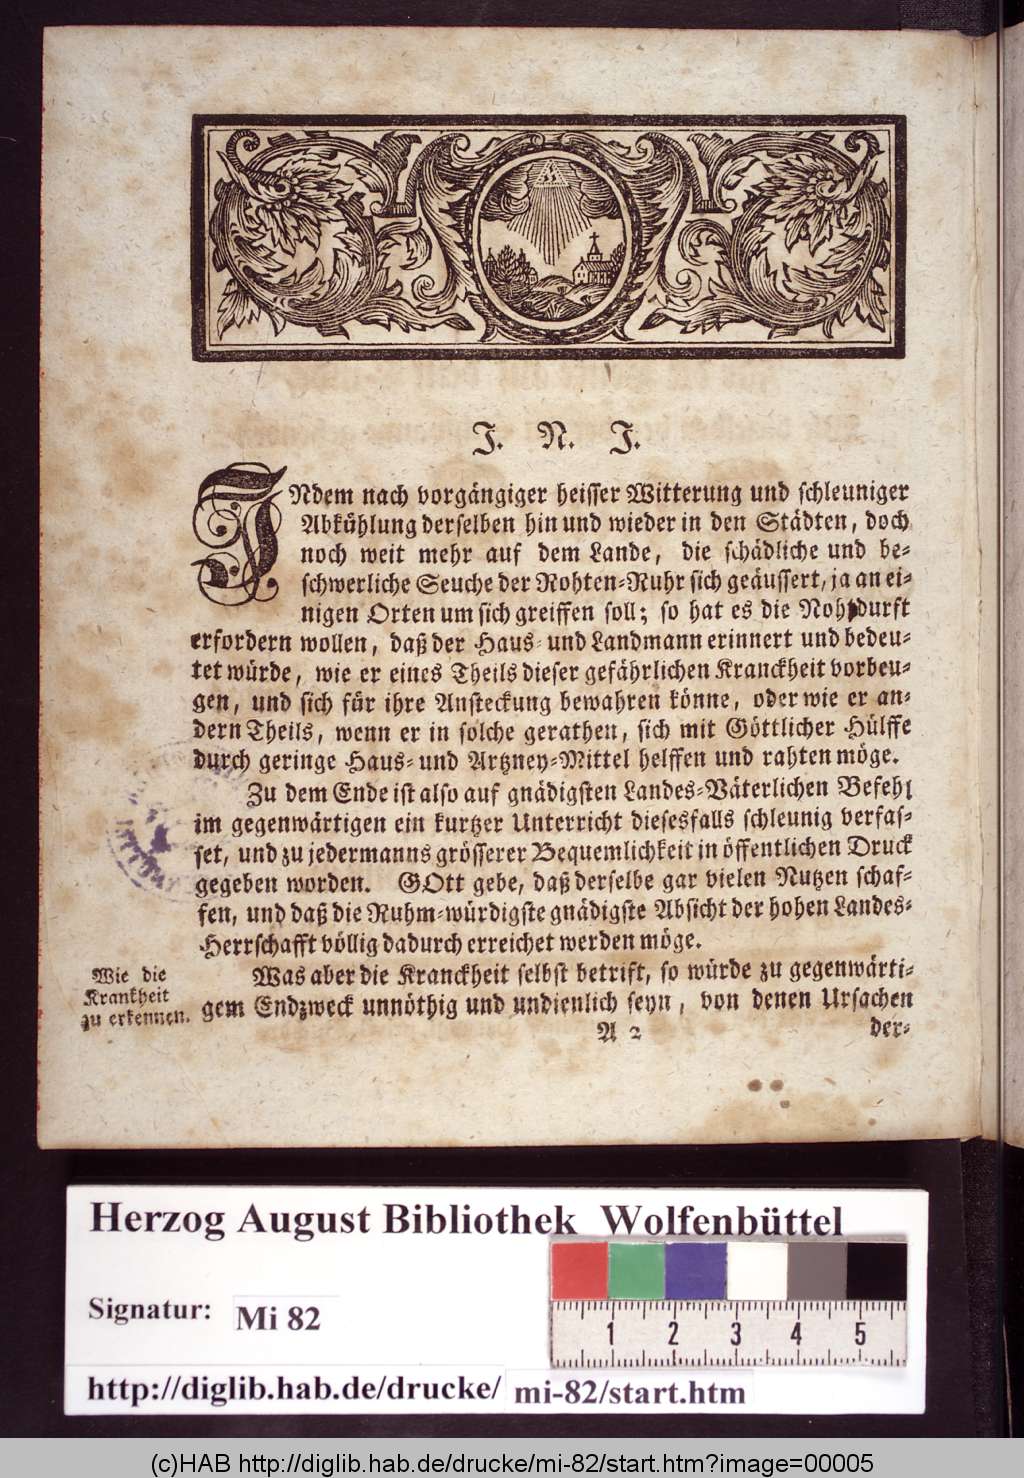 J. N. J.
INdem nach vorgängiger heisser Witterung und schleuniger
Abkühlung derselben hin und wieder in den Städten, doch
noch weit mehr auf dem Lande, die schädliche und be-
schwerliche Seuche der Rohten-Ruhr sich geäussert, ja an ei-
nigen Orten um sich greiffen soll; so hat es die Nohtdurft
erfordern wollen, daß der Haus- und Landmann erinnert und bedeu-
tet würde, wie er eines Theils dieser gefährlichen Kranckheit vorbeu-
gen, und sich für ihre Ansteckung bewahren könne, oder wie er an-
dern Theils, wenn er in solche gerathen, sich mit Göttlicher Hülffe
durch geringe Haus- und Artzney-Mittel helffen und rahten möge.
Zu dem Ende ist also auf gnädigsten Landes-Väterlichen Befehl
im gegenwärtigen ein kurtzer Unterricht diesesfalls schleunig verfas-
set, und zu jedermanns grösserer Bequemlichkeit in öffentlichen Druck
gegeben worden. GOtt gebe, daß derselbe gar vielen Nutzen schaf-
fen, und daß die Ruhm-würdigste gnädigste Absicht der hohen Landes-
Herrschafft völlig dadurch erreichet werden möge.
Wie die
Krankheit
zu erkennen.
Was aber die Kranckheit selbst betrift, so würde zu gegenwärti-
gem Endzweck unnöthig und undienlich seyn, von denen Ursachen
A 2
der-
Herzog August Bibliothek Wolfenbüttel
Signatur: Mi 82
1 2 3 4 5
http://diglib.hab.de/drucke/ mi-82/start.htm
(c)HAB http://diglib.hab.de/drucke/mi-82/start.htm?image=00005